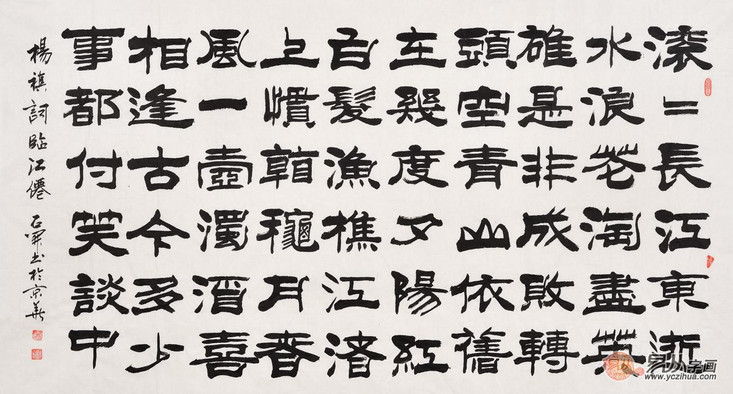 滚〻長江東逝
水浪花淘盡英
雄是非成敗轉
頭空青山依舊
在幾度夕陽紅
白髮漁樵江渚
上慣看龝月春
風一壺濁酒喜
相逢古今多少
事都付笑談中
楊慎詞臨江僊
书於京華
易从字画
www.yczihua.com